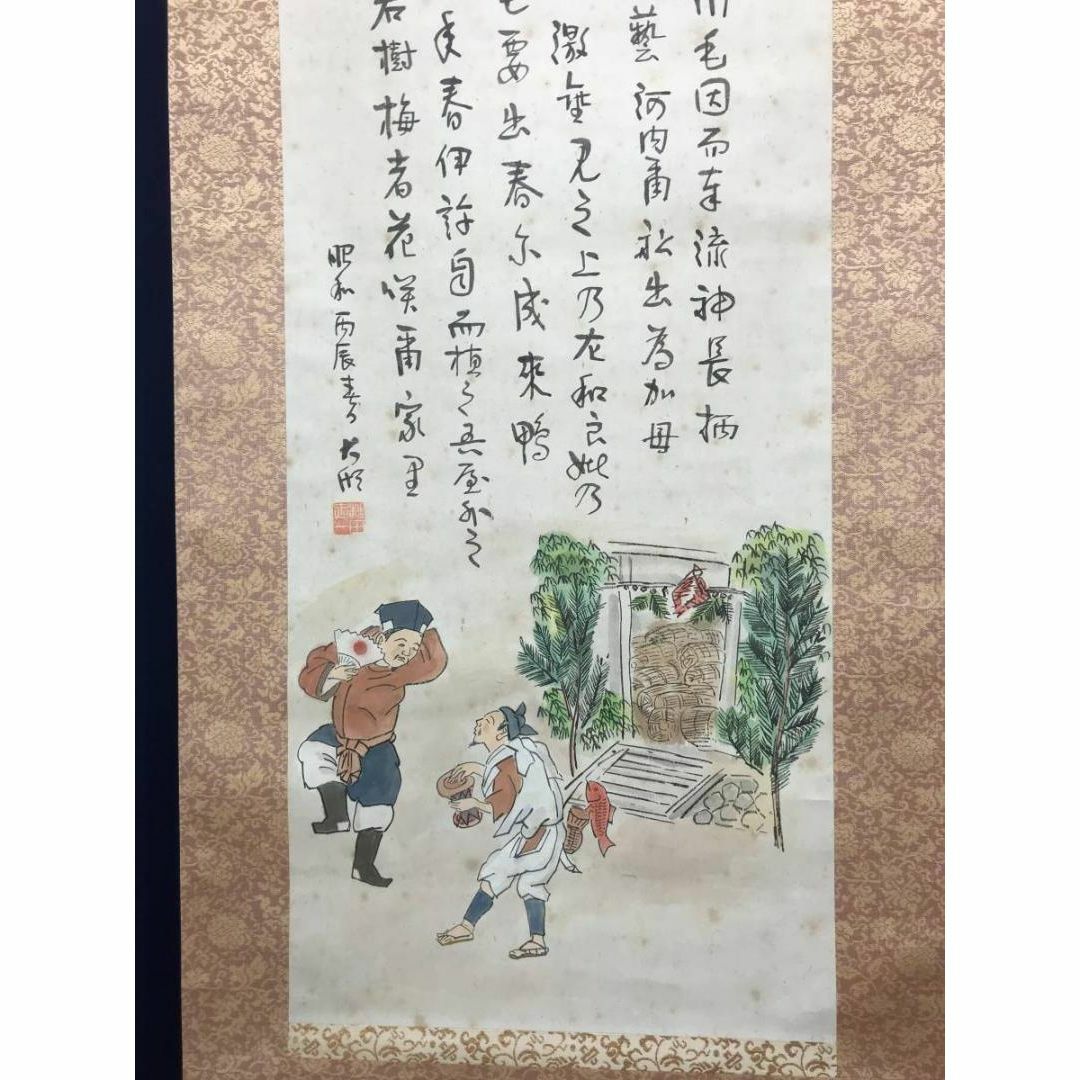 川毛因而奉流神長柄
藝河内爾船出為加母
激垂見之上乃左和良妣乃
毛要出春尓成來鴨
年春伊許自而植之吾屋外之
若樹梅者花咲爾家里
昭和丙辰春 大